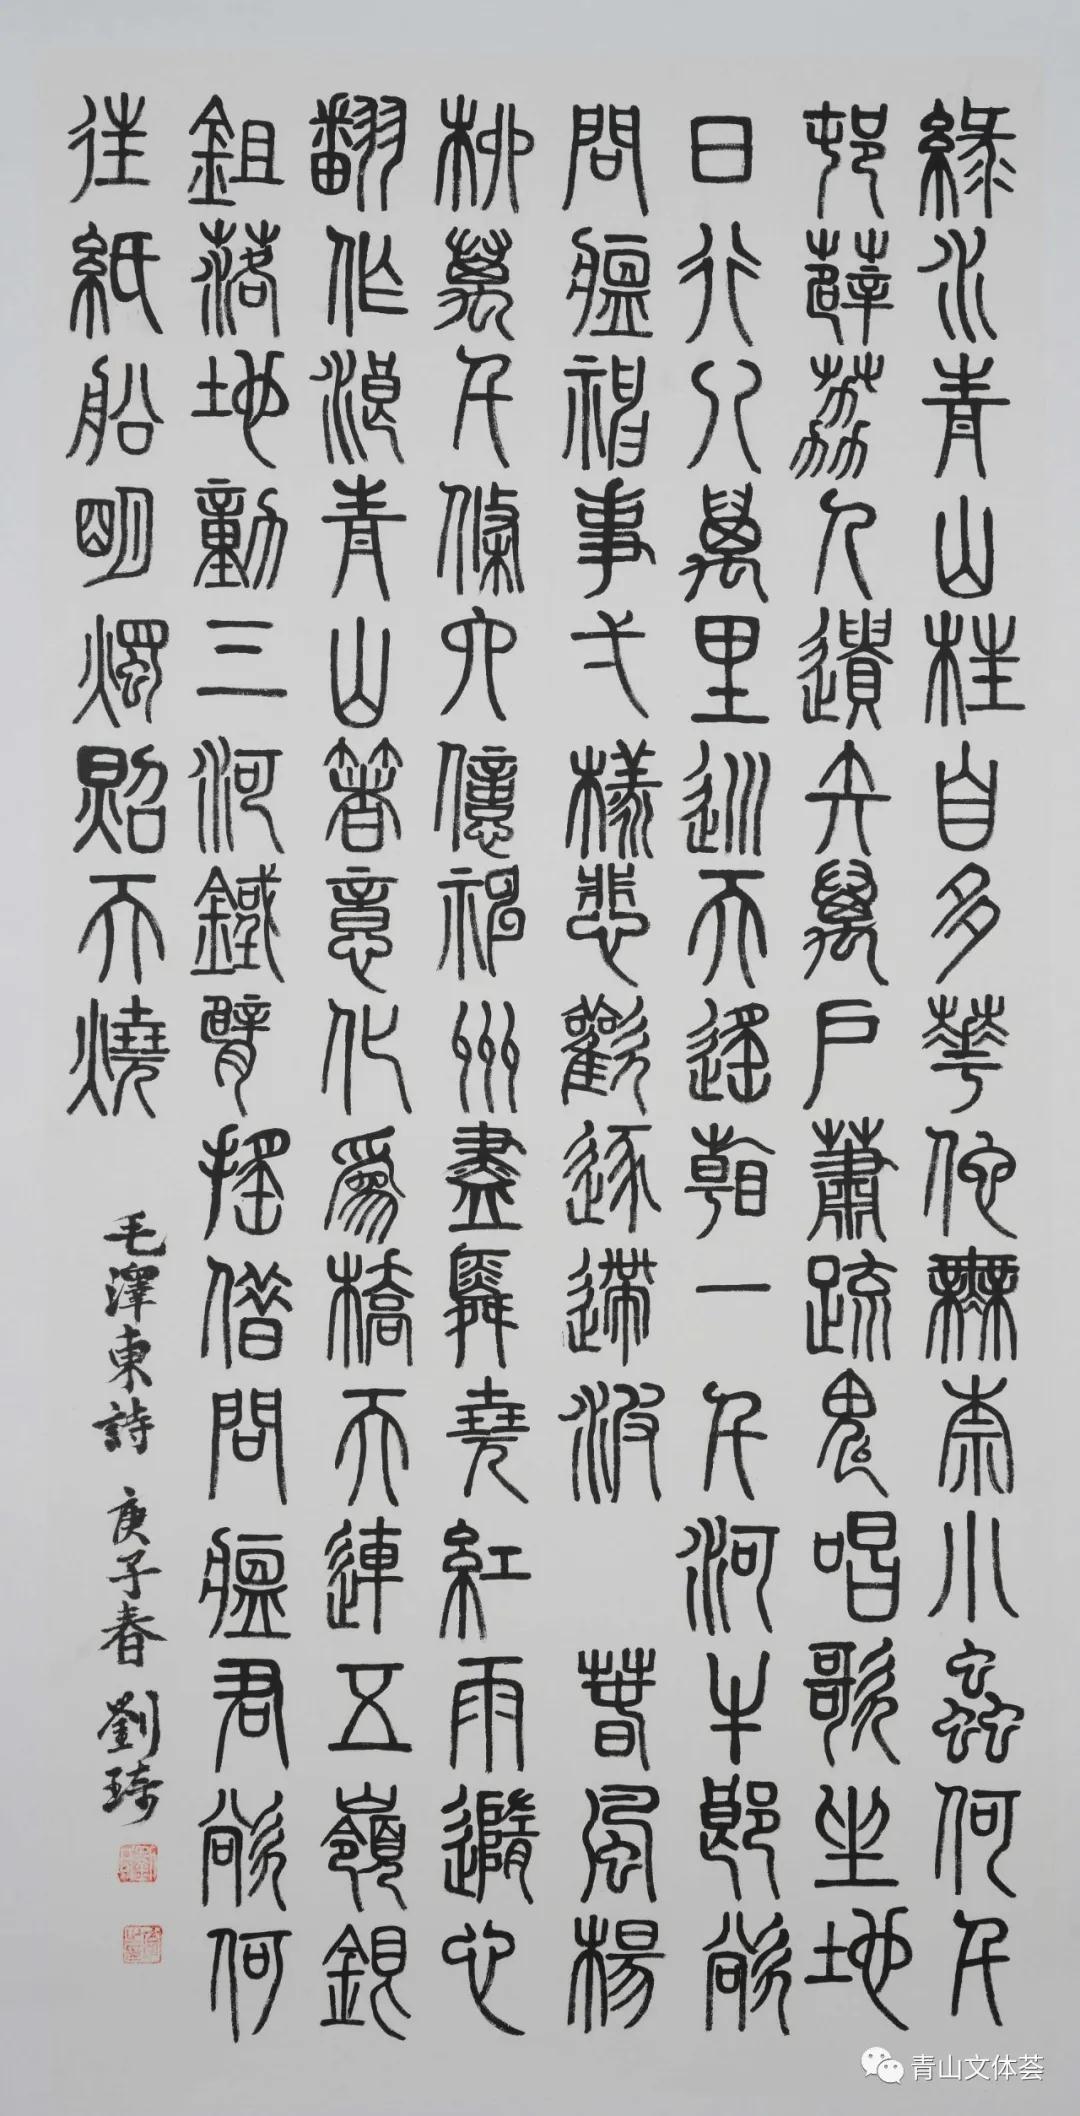 綠水青山枉自多華佗無奈小蟲何千
邨薜荔人遺矢萬戶蕭疏鬼唱歌坐地
日行八萬里巡天遙看一千河牛郎欲
問瘟神事弌樣悲歡逐逝波 春風楊
柳萬千條六億神州盡舜堯紅雨隨心
翻作浪青山著意化爲橋天連五嶺銀
鉏落地動三河鐵臂搖借問瘟君欲何
往紙船明燭照天燒
毛澤東詩 庚子春 劉琦
青山文体荟